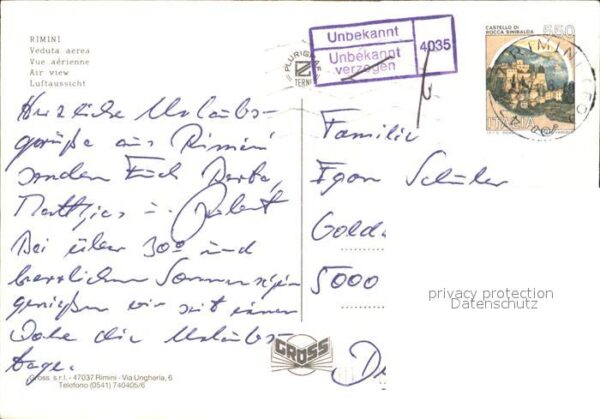 RIMINI
Veduta aerea
Vue aérienne
Air view
Luftaussicht
Herzliche Urlaubs-
grüße aus Rimini
senden Euch
Matthias u. Robert
Bei über 30° und
herrlichem Sonnenschein
genießen wir seit einer
die Urlaubs-
tage.
Gross s.r.l. - 47037 Rimini - Via Ungheria, 6
Telefono (0541) 740405/6
PLURIGRAF
TERNI
GROSS
Unbekannt
Unbekannt
verzogen
4035
CASTELLO DI
ROCCA SINIBALDA
550
ITALIA
RIMINI
Familie
Egon Schüler
Gold
5000
privacy protection
Datenschutz